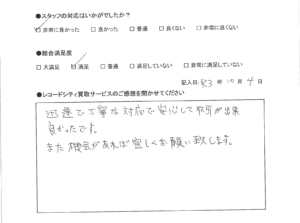 ●スタッフの対応はいかがでしたか?
☑非常に良かった □良かった □普通 □良くない □非常に良くない
●総合満足度
□大満足 ☑満足 □普通 □満足していない □非常に満足していない
記入日: R3年10月4日
●レコードシティ買取サービスのご感想を聞かせてください
迅速で丁寧な対応で安心して取引が出来
良かったです。
また機会があれば宜しくお願い致します。